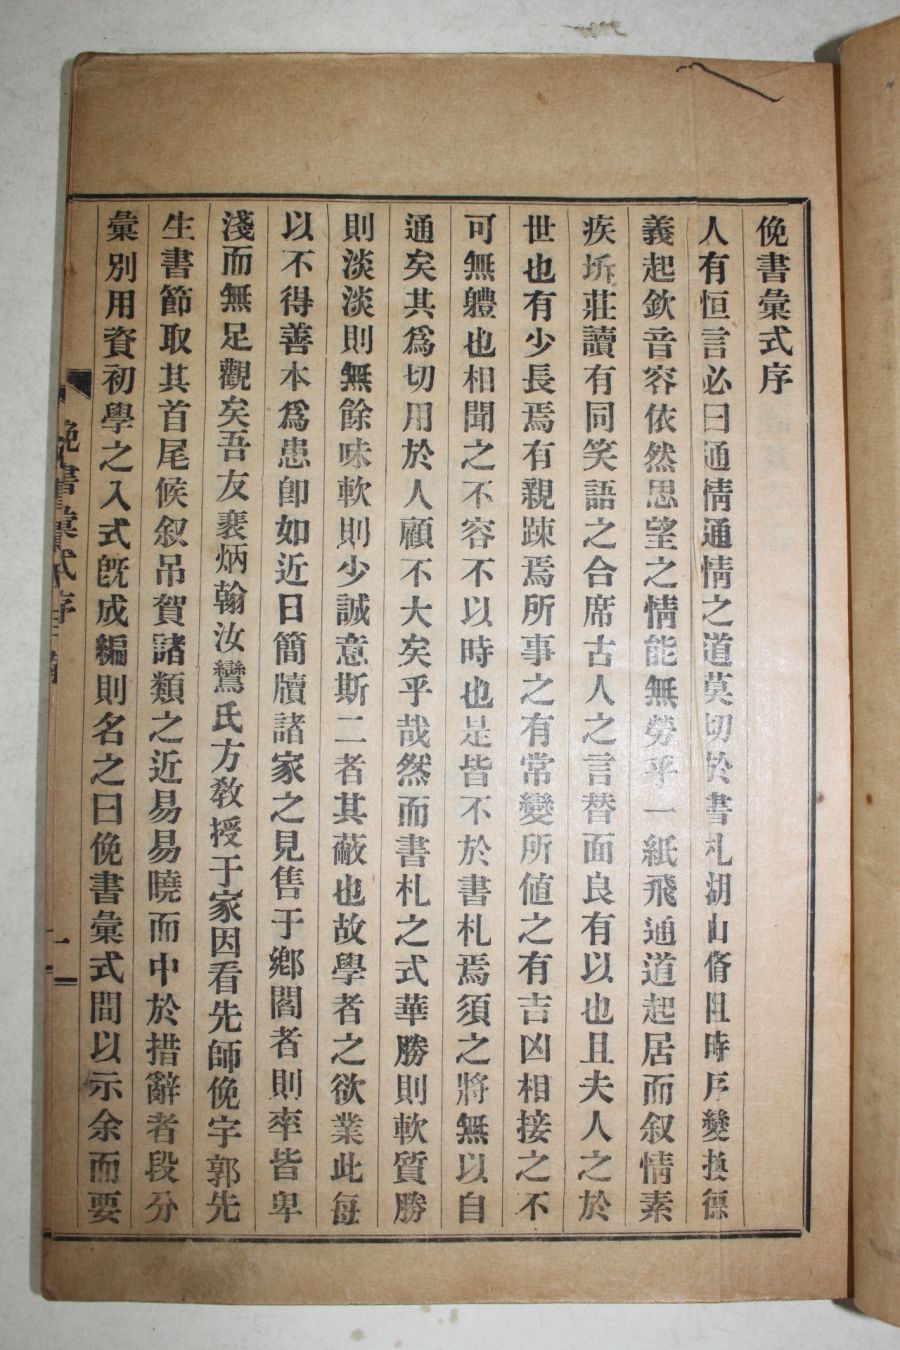 俛書彙式序
人有恒言必曰通情通情之道莫切於書札湖山脩阻時序變換德
義起欽音容依然思望之情能無勞乎一紙飛通道起居而叙情素
疾坼莊讀有同笑語之合席古人之言替面良有以也且夫人之於
世也有少長焉有親踈焉所事之有常變所値之有吉凶相接之不
可無軆也相聞之不容不以時也是皆不於書札焉須之將無以自
通矣其爲切用於人顧不大矣乎哉然而書札之式華勝則軟質勝
則淡淡則無餘味軟則少誠意斯二者其蔽也故學者之欲業此每
以不得善本爲患卽如近日簡牘諸家之見售于鄕閣者則率皆卑
淺而無足觀矣吾友裵炳翰汝鸞氏方敎授于家因看先師俛宇郭先
生書節取其首尾候叙吊賀諸類之近易易曉而中於措辭者段分
彙別用資初學之入式旣成編則名之曰俛書彙式間以示余而要
俛書彙式 序
一